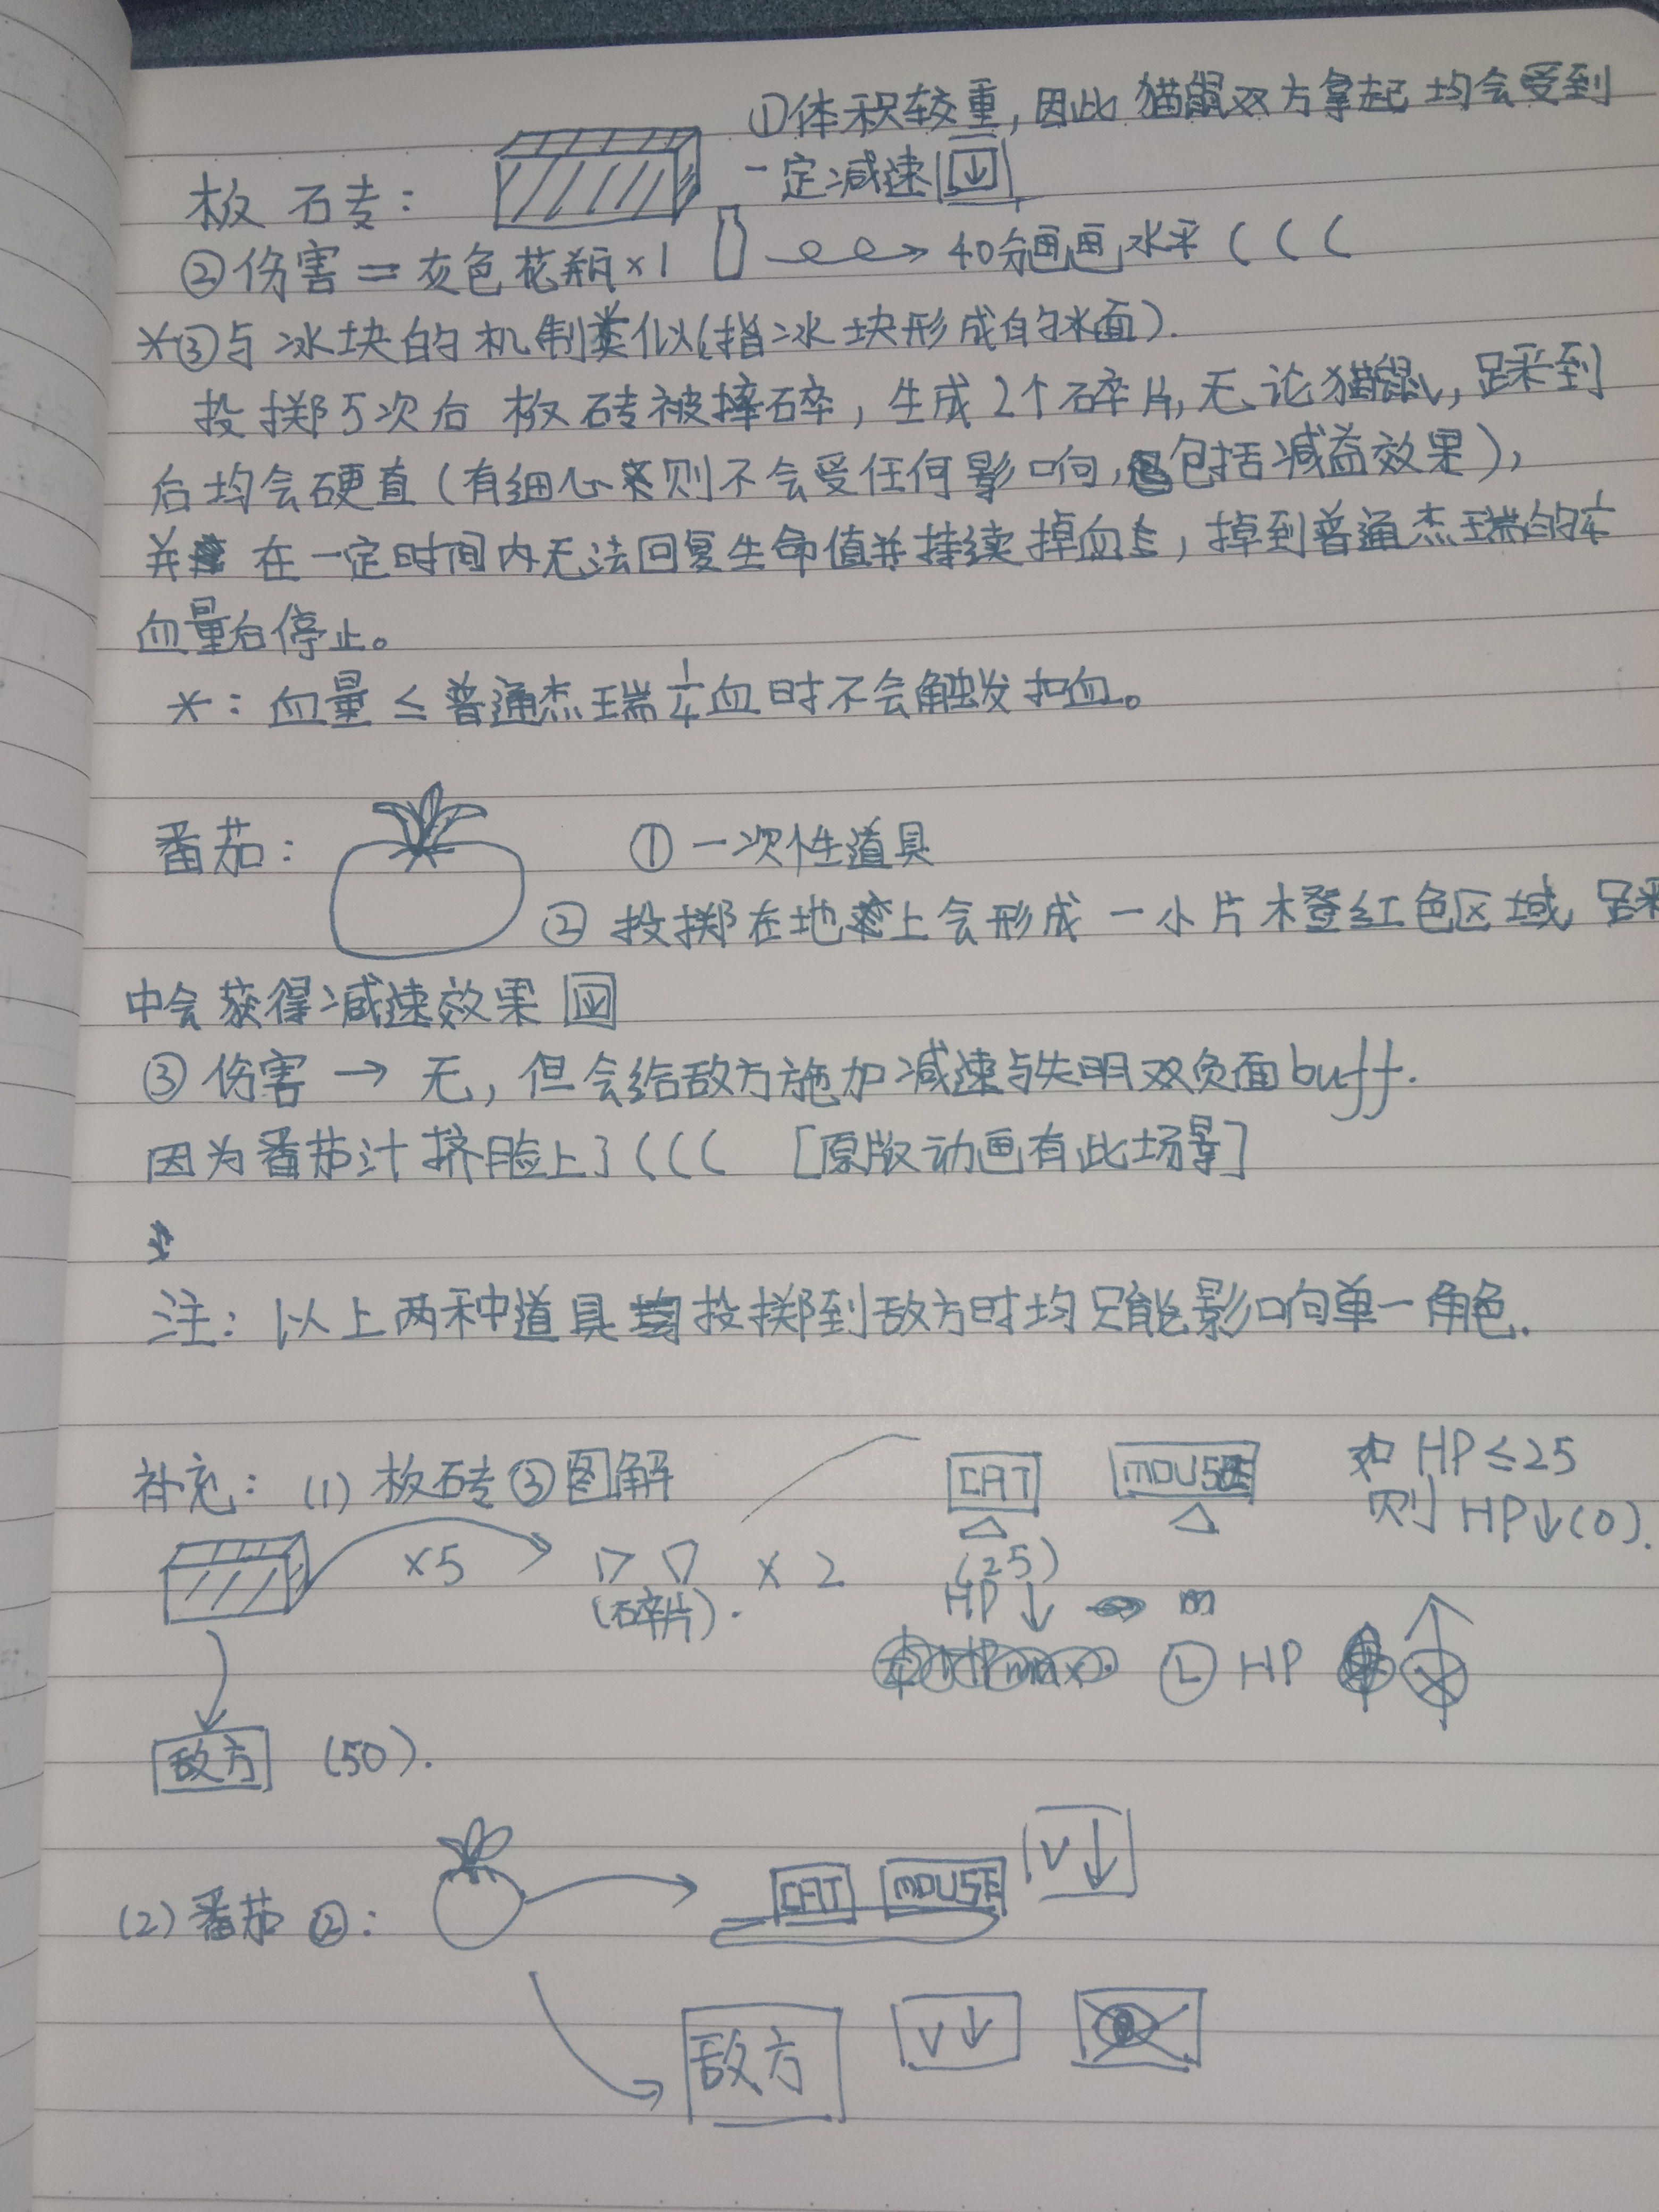 ①体积较重，因此猫鼠双方拿起均会受到
一定减速 ↓
板砖：
②伤害＝灰色花瓶×1 → 40分画画水平(((
*③与冰块的机制类似(指冰块形成的冰面).
投掷5次后板砖被摔碎，生成2个碎片，无论猫鼠，踩到
后均会硬直(有细心则不会受任何影响，包括减益效果)，
并在一定时间内无法回复生命值并持续掉血，掉到普通杰瑞的1/4
血量后停止。
*：血量≤普通杰瑞1/4血时不会触发扣血。
番茄：
①一次性道具
②投掷在地上会形成一小片橙红色区域，踩
中会获得减速效果 ↓
③伤害→无，但会给敌方施加减速与失明双负面buff.
因为番茄汁挤脸上了(((　[原版动画有此场景]
注：以上两种道具投掷到敌方时均只能影响单一角色.
补充：(1)板砖③图解
CAT MOUSE
如HP≤25
则HP↓(0).
×5
(碎片).
×2
(25)
HP↓
HP
敌方 (50).
(2)番茄②：
CAT MOUSE V↓
敌方 V↓